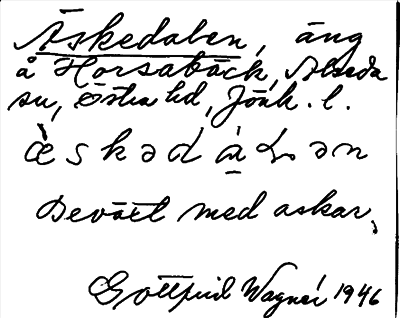 Äskedalen, äng
å Horsabäck, Alseda
sn, Östra hd, Jönk. l.
æ̀skədáLən
Beväxt med askar.
Gottfrid Wagnér 1946